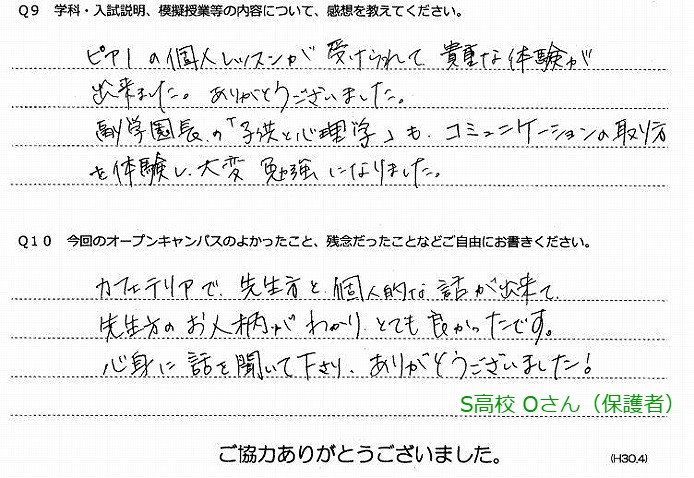 Q9 学科・入試説明、模擬授業等の内容について、感想を教えてください。
ピアノの個人レッスンが受けられて貴重な体験が
出来ました。ありがとうございました。
副学園長の「子供と心理学」も、コミュニケーションの取り方
を体験し、大変勉強になりました。
Q10 今回のオープンキャンパスのよかったこと、残念だったことなどご自由にお書きください。
カフェテリアで、先生方と個人的な話が出来て、
先生方のお人柄がわかり、とても良かったです。
心身に話を聞いて下さり、ありがとうございました！
S高校 Oさん（保護者）
ご協力ありがとうございました。
(H30.4)